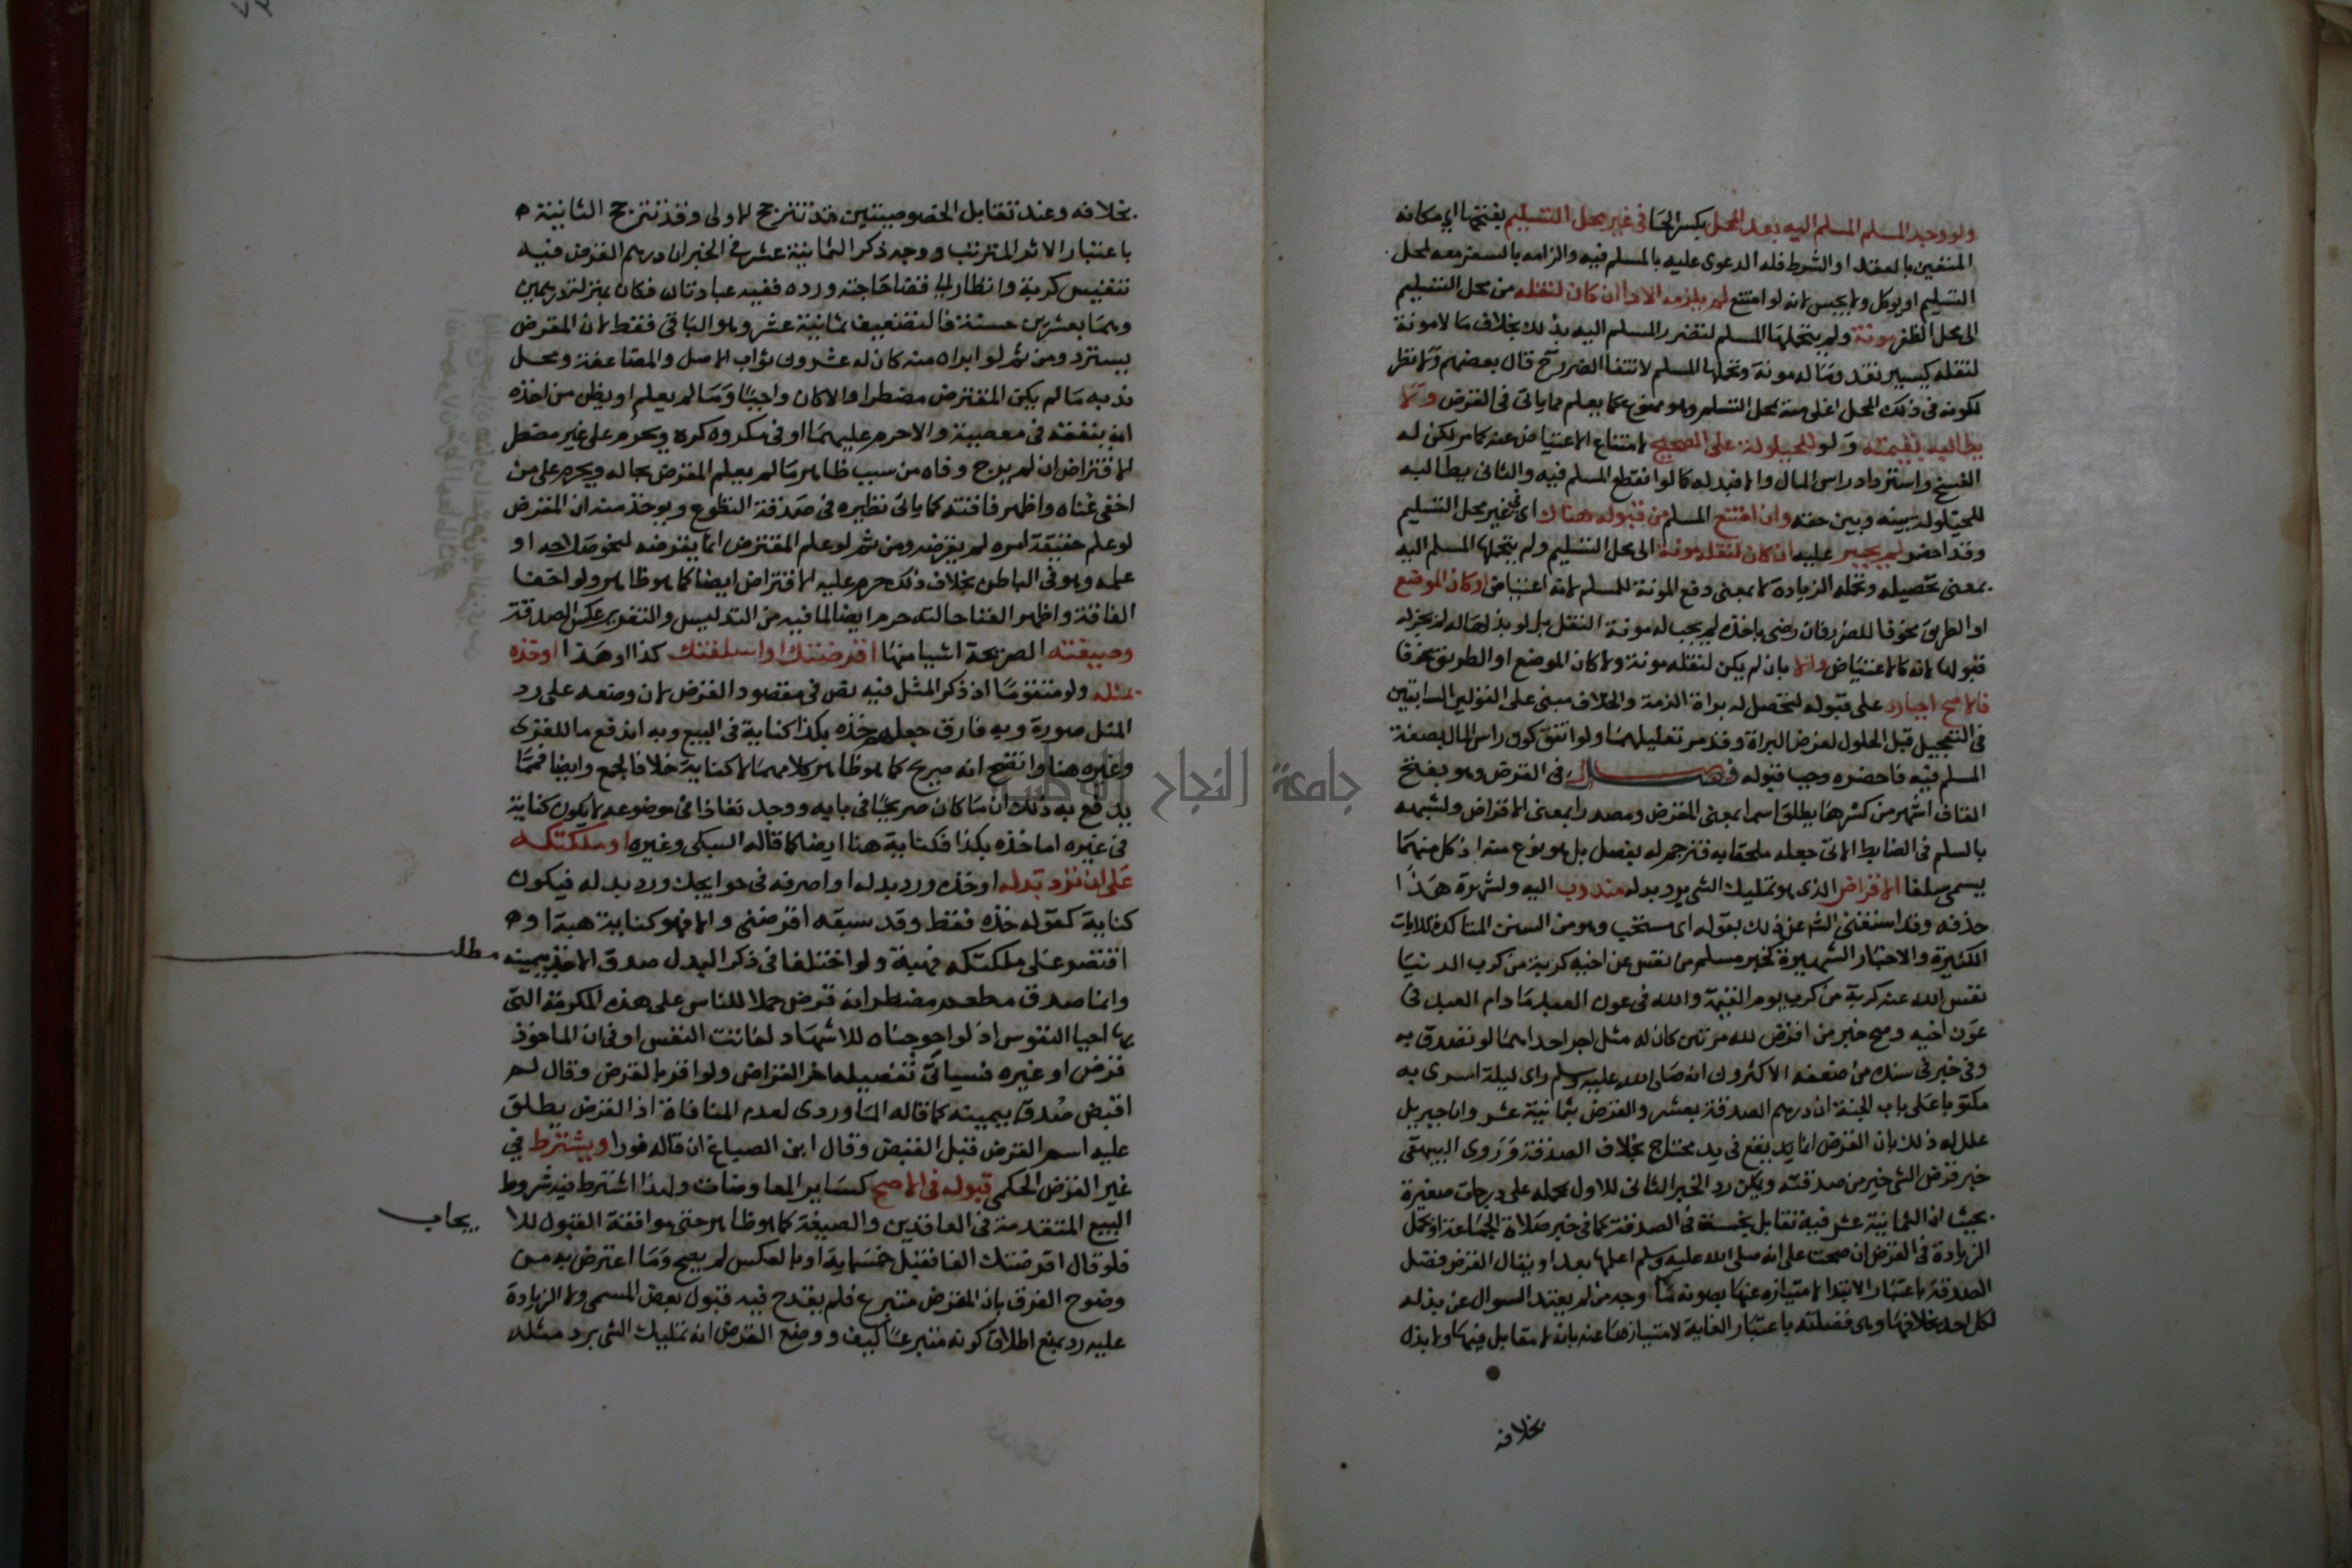 ولو وجد المسلم المسلم اليه بعد المحل بكسر الحا في غير محل التسليم بفتحها اي مكانه
المتعين بالعقد او الشرط فله الدعوى عليه بالمسلم فيه والزامه بالسفر معه لمحل
التسليم او يوكل ولا يحبس لانه لو امتنع لم يلزمه الادا ان كان لنقله من محل التسليم
الى محل الظفر مونة ولم يتحملها المسلم لتضرر المسلم اليه بذلك بخلاف ما لا مونة
لنقله كيسير نقد وماله مونة وتحملها المسلم لانتفا الضرر ح قال بعضهم ولا نظر
لكونه في ذلك المحل اغلى منه بمحل التسلم وهو ممنوع كما يعلم مما ياتي في القرض ولا
يطالبه بقيمته ولو للحيلولة على الصحيح لامتناع الاعتياض عنه كما مر لكن له
الفسخ واسترداد راس المال والا فبدله كما لو انقطع المسلم فيه والثاني يطالبه
للحيلولة بينه وبين حقه وان امتنع المسلم من قبوله هناك اي في غير محل التسليم
وقد احضر لم يجبر عليه ان كان لنقله مونة الى محل التسليم ولم يتحملها المسلم اليه
بمعنى تحصيله وتحمله الزيادة لا بمعنى دفع المونة للمسلم لانه اعتياض او كان الموضع
او الطريق مخوفا للضرر فان رضي باخذه لم يجب له مونة النقل بل لو بذلها له لم يجز له
قبولها لانه كالاعتياض والا بان لم يكن لنقله مونة ولا كان الموضع او الطريق مخوفا
فالاصح اجباره على قبوله لتحصل له براة الذمة والخلاف مبني على القولين السابقين
في التعجيل قبل الحلول لغرض البراة وقد مر تعليلهما ولو اتفق كون راس المال بصفة
المسلم فيه فاحضره وجب قبوله فصل في القرض وهو بفتح
القاف اشهر من كسرها يطلق اسما بمعنى المقرض ومصدرا بمعنى الاقراض ولشبهه
بالسلم في الضابط الاتي جعله ملحقا به فترجم له بفصل بل هو نوع منه اذ كل منهما
يسمى سلفا الاقراض الذي هو تمليك الشي برد بدله مندوب اليه ولشهرة هذا
حذفه وقد استغنى الشر عن ذلك بقوله اي مستحب وهو من السنن المتاكدة للايات
الكثيرة والاخبار الشهيرة كخبر مسلم من نفس عن اخيه كربة من كرب الدنيا
نفس الله عنه كربة من كرب يوم القيمة والله في عون العبد ما دام العبد في
عون اخيه وصح خبر من اقرض لله مرتين كان له مثل اجر احدهما لو تصدق به
وفي خبر في سنده من ضعفه الاكثرون انه صلى الله عليه وسلم راى ليلة اسري به
مكتوبا على باب الجنة ان درهم الصدقة بعشر والقرض بثمانية عشر وان جبريل
علل له ذلك بان القرض انما يقع في يد محتاج بخلاف الصدقة وروى البيهقي
خبر قرض الشي خير من صدقته ويمكن رد الخبر الثاني للاول بحمله على درجات صغيرة
بحيث ان الثمانية عشر فيه تقابل بخمسة في الصدقة كما في خبر صلاة الجماعة او يحمل
الزيادة في القرض ان صحت على انه صلى الله عليه وسلم اعلمها بعد او يقال القرض فضل
الصدقة باعتبار الابتدا لامتيازه عنها بصونه ما وجه من لم يعتد السوال عن بذله
لكل احد بخلافها وهي فضلته باعتبار الغاية لامتيازها عنه بانه لا مقابل فيها ولا بدل
بخلافه
بخلافه وعند تقابل الخصوصيتين قد تترجح الاولى وقد تترجح الثانية
باعتبار الاثر المترتب ووجه ذكر الثمانية عشر في الخبر ان درهم القرض فيه
تنفيس كربة وانظار الى قضا حاجته ورده ففيه عبادتان فكان بمنزلة درهمين
وهما بعشرين حسنة فالتضعيف ثمانية عشر وهو الباقي فقط لان المقرض
يسترد ومن ثم لو ابراه منه كان له عشرون ثواب الاصل والمضاعفة ومحل
ندبه ما لم يكن المقترض مضطرا والا كان واجبا وما لم يعلم او يظن من اخذه
انه ينفقه في معصية والا حرم عليهما او في مكروه كره ويحرم على غير مضطر
الاقتراض ان لم يرج وفاه من سبب ظاهر ما لم يعلم المقرض بحاله ويحرم على من
اخفى غناه واظهر فاقته كما ياتي نظيره في صدقة التطوع ويوخذ منه ان المقرض
لو علم حقيقة امره لم يقرضه ومن ثم لو علم المقترض انما يقرضه لنحو صلاحه او
علمه وهو في الباطن بخلاف ذلك حرم عليه الاقتراض ايضا كما هو ظاهر ولو اخفا
الفاقة واظهر الغنا حالته حرم ايضا لما فيه من التدليس والتغرير عكس الصدقة
وصيغته الصريحة اشيا منها اقرضتك او اسلفتك كذا او هذا او خذه
بمثله ولو متقوما اذ ذكر المثل فيه نص في مقصود القرض لان وضعه على رد
المثل صورة وبه فارق جعلهم خذه بكذا كناية في البيع وبه اندفع ما للغزي
وغيره هنا واتضح انه صريح كما هو ظاهر كلامهما لا كناية خلافا لجمع وايضا فمما
يدفع به ذلك ان ما كان صريحا في بابه ووجد نفاذا في موضوعه لا يكون كناية
في غيره اما خذه بكذا فكناية هنا ايضا كما قاله السبكي وغيره او ملكتكه
على ان ترد بدله او خذه ورد بدله او اصرفه في حوايجك ورد بدله فيكون
كناية كقوله خذه فقط وقد سبقه اقرضني والا فهو كناية هبة او
اقتصر على ملكتكه فهبة ولو اختلفا في ذكر البدل صدق الاخذ بيمينه
مطلب
وانما صدق مطعم مضطر انه قرض حملا للناس على هذه المكرمة التي
بها احيا النفوس اذ لو احوجناه للاشهاد لفاتت النفس او في ان الماخوذ
قرض او غيره فسياتي تفصيله اخر القراض ولو اقر بالقرض وقال لم
اقبض صدق بيمينه كما قاله الماوردي لعدم المنافاة اذ القرض يطلق
عليه اسم القرض قبل القبض وقال ابن الصباغ ان قاله فورا ويشترط في
غير القرض الحكمي قبوله في الاصح كساير المعاوضات ولهذا اشترط فيه شروط
البيع المتقدمة في العاقدين والصيغة كما هو ظاهر حتى موافقة القبول للا
يجاب
فلو قال اقرضتك الفا فقبل خمسماية او بالعكس لم يصح وما اعترض به من
وضوح الفرق بان المقرض متبرع فلم يقدح فيه قبول بعض المسمى ولا الزيادة
عليه رد بمنع اطلاق كونه متبرعا كيف ووضع القرض انه تمليك الشي برد مثله
جامعة النجاح الوطنية